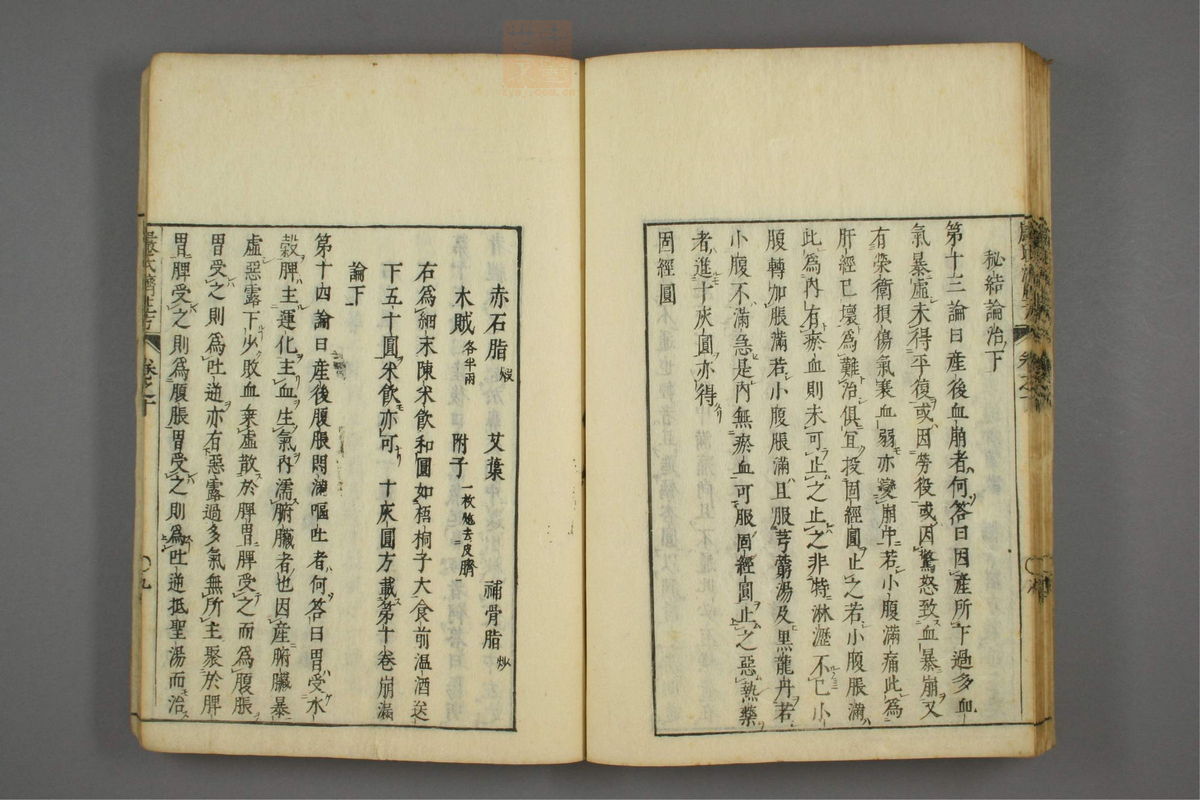 秘結論治下
第十三論曰産後血崩者何答曰因産所下過多血
氣暴虛未得平復或因勞役或因驚怒致血暴崩又
有榮衛損傷氣衰血弱亦變崩中若小腹滿痛此爲
肝經已壞爲難治俱宜投固經圓止之若小腹脹滿
此爲內有瘀血則未可止之止之非特淋瀝不已小
腹轉加脹滿若小腹脹滿且服芎藭湯及黑龍丹若
小腹不滿急是內無瘀血可服固經圓止之惡熱藥
者進十灰圓亦得
固經圓
赤石脂 煅 艾葉 補骨脂 炒
木賊 各半兩 附子 一枚炮去皮臍
右爲細末陳米飲和圓如梧桐子大食前溫酒送
下五十圓米飲亦可 十灰圓方載第十卷崩漏
論下
第十四論曰産後腹脹悶滿嘔吐者何答曰胃受水
穀脾主運化主血生氣內濡腑臟者也因産腑臟暴
虛惡露下少敗血乘虛散於脾胃脾受之而爲腹脹
胃受之則爲吐逆亦有惡露過多氣無所主聚於脾
胃脾受之則爲腹脹胃受之則爲吐逆抵聖湯而治
嚴氏濟生方 卷之十 九